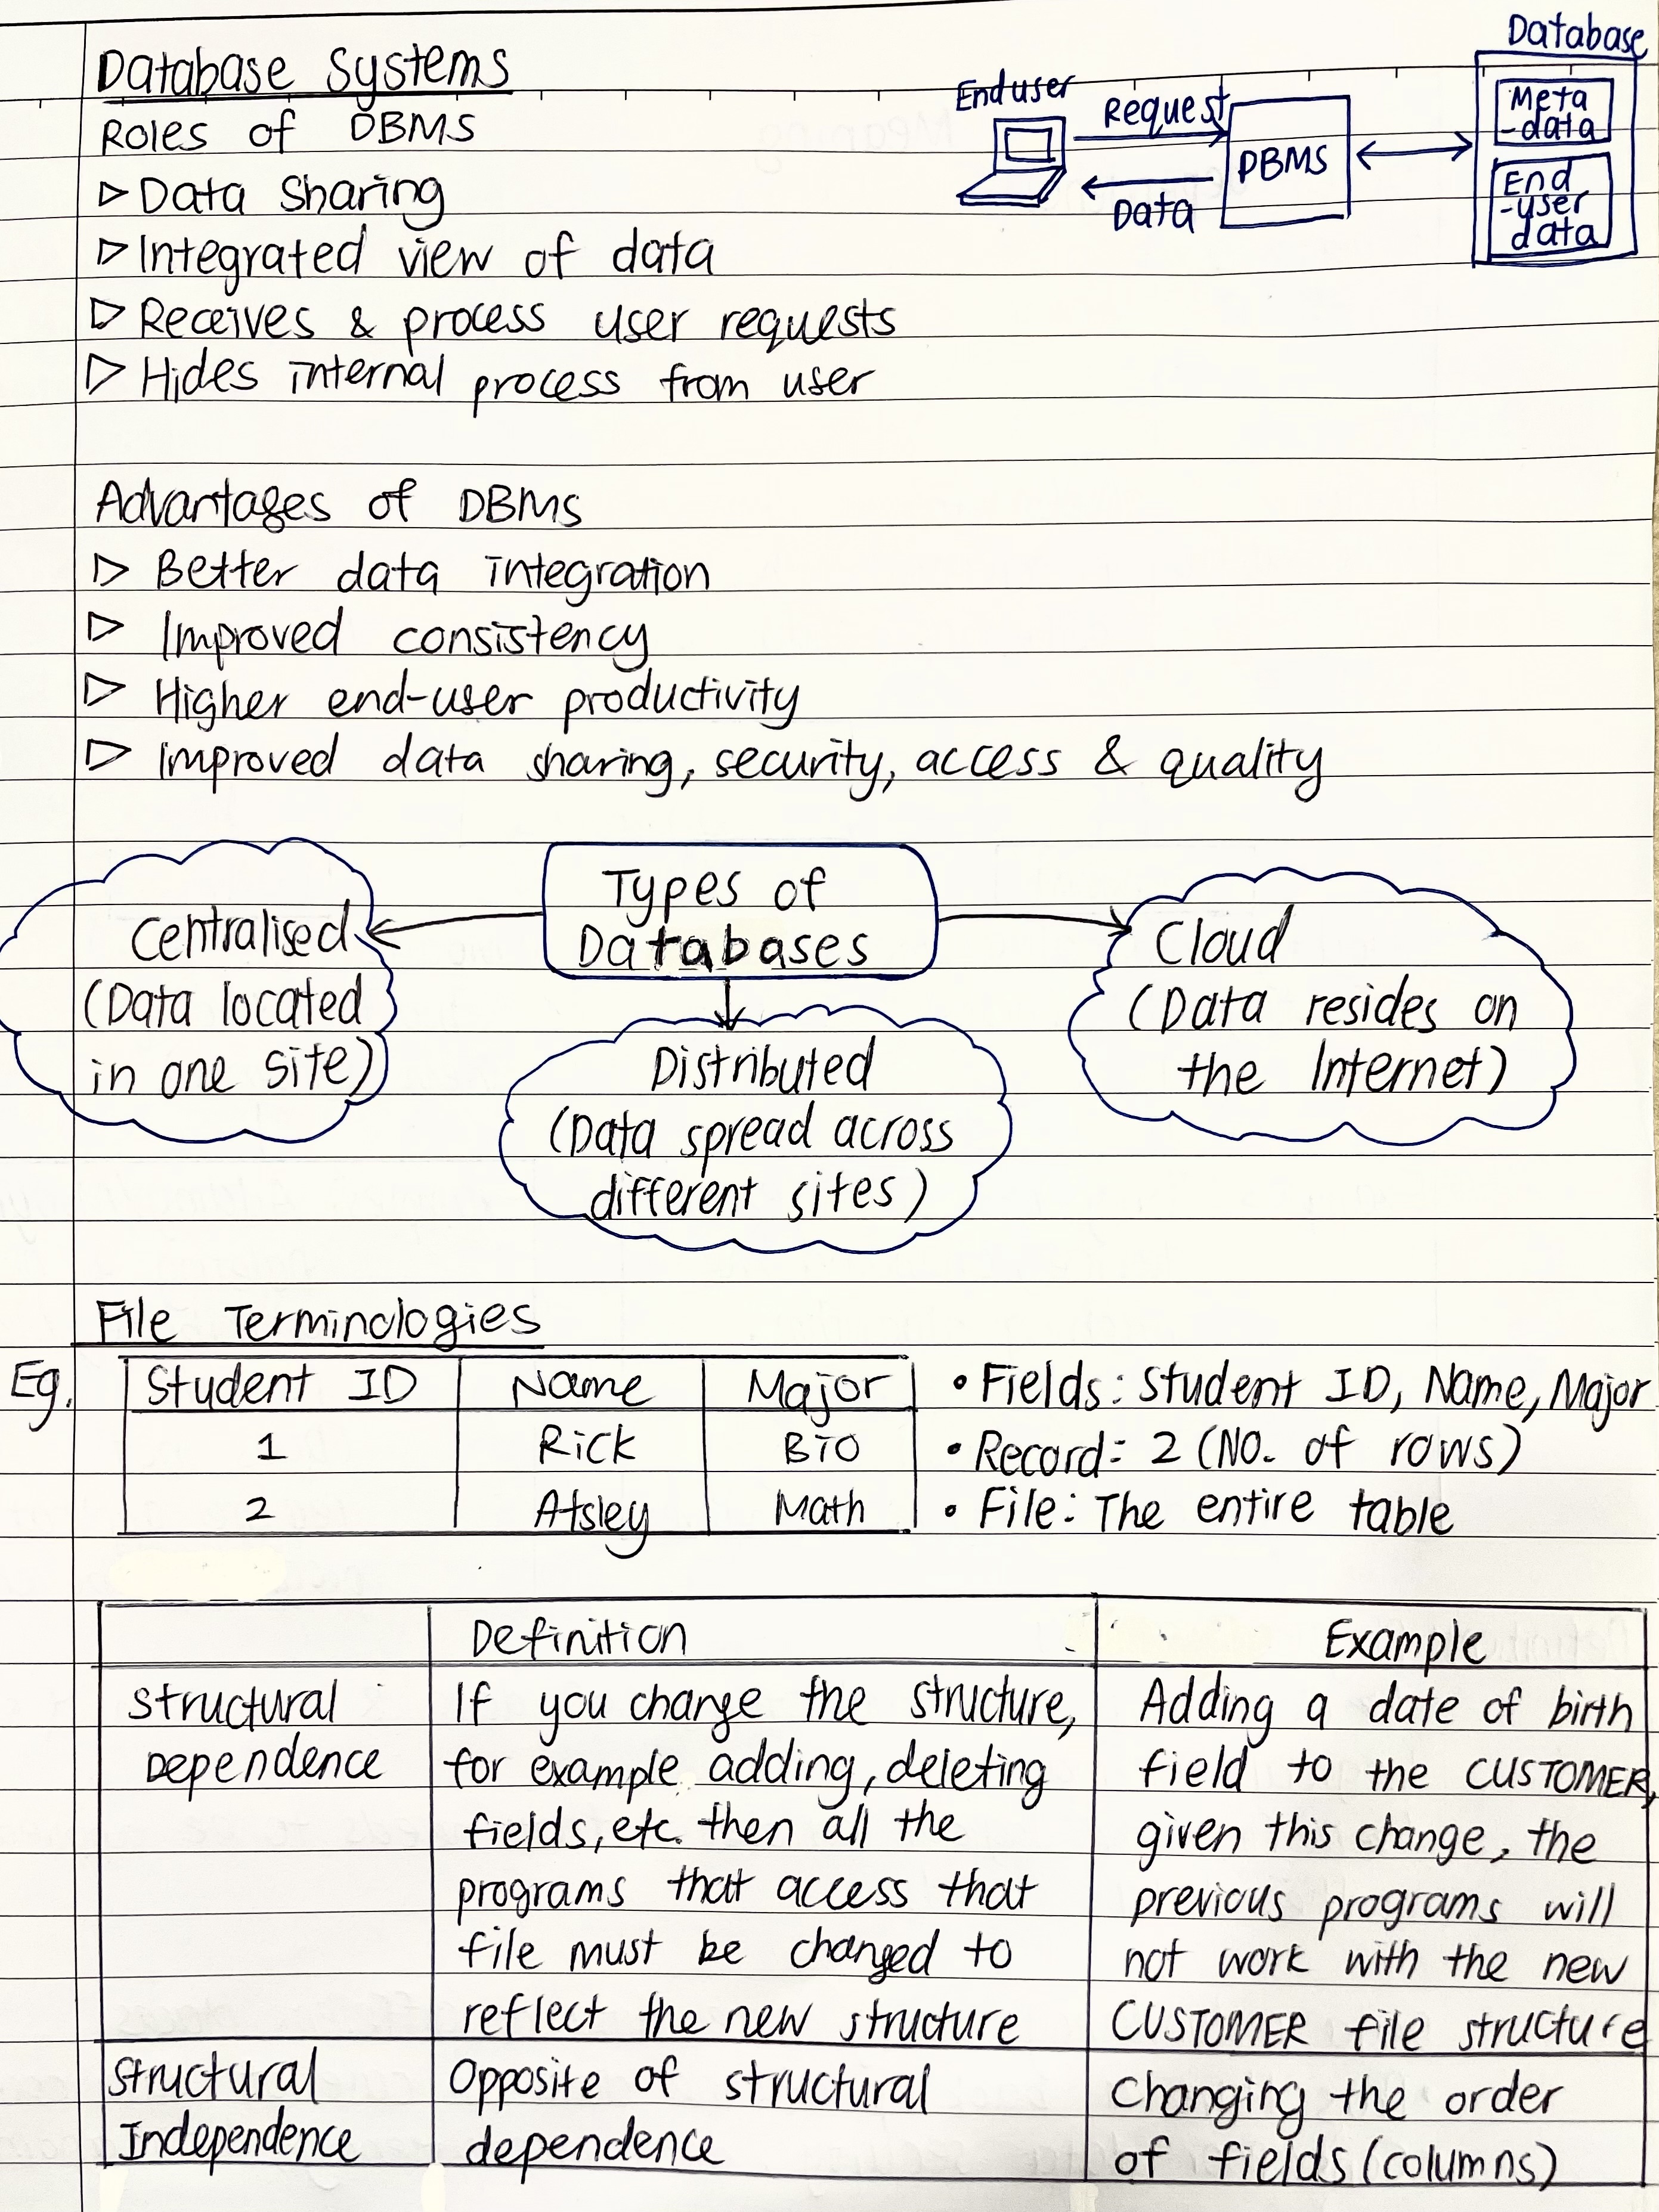 Database Systems
Roles of DBMS
▷ Data Sharing
▷ Integrated view of data
▷ Receives & process user requests
▷ Hides internal process from user
End user
Request
Data
DBMS
Database
Meta
-data
End
-user
data
Advantages of DBMS
▷ Better data integration
▷ Improved consistency
▷ Higher end-user productivity
▷ Improved data sharing, security, access & quality
Types of
Databases
Centralised
(Data located
in one site)
Distributed
(Data spread across
different sites)
Cloud
(Data resides on
the Internet)
File Terminologies
Eg.
Student ID Name Major
1 Rick Bio
2 Atsley Math
• Fields: Student ID, Name, Major
• Record: 2 (No. of rows)
• File: The entire table
Definition Example
Structural
Dependence
If you change the structure,
for example adding, deleting
fields, etc. then all the
programs that access that
file must be changed to
reflect the new structure
Adding a date of birth
field to the CUSTOMER,
given this change, the
previous programs will
not work with the new
CUSTOMER file structure
Structural
Independence
Opposite of structural
dependence
Changing the order
of fields (columns)